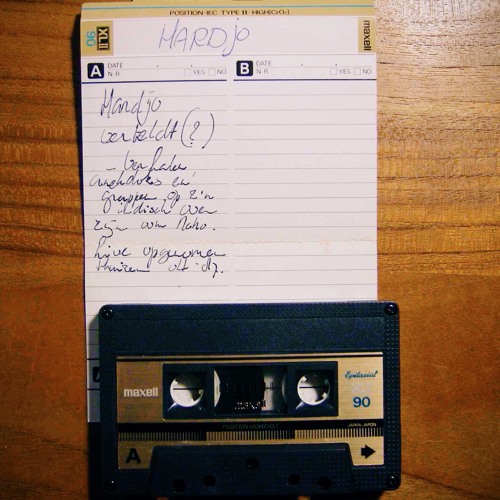 POSITION·IEC TYPE II HIGH(CrO₂)
XLII 90
MARDJO
maxell
A DATE
N.R YES NO
B DATE
N.R YES NO
Mardjo
verteldt(?)
- Verhalen
anekdotes en
grappen op z'n
Indisch over
zijn oom
Live opgenomen
maxell
maxell
Epitaxial
90
JAPAN JAPON
A